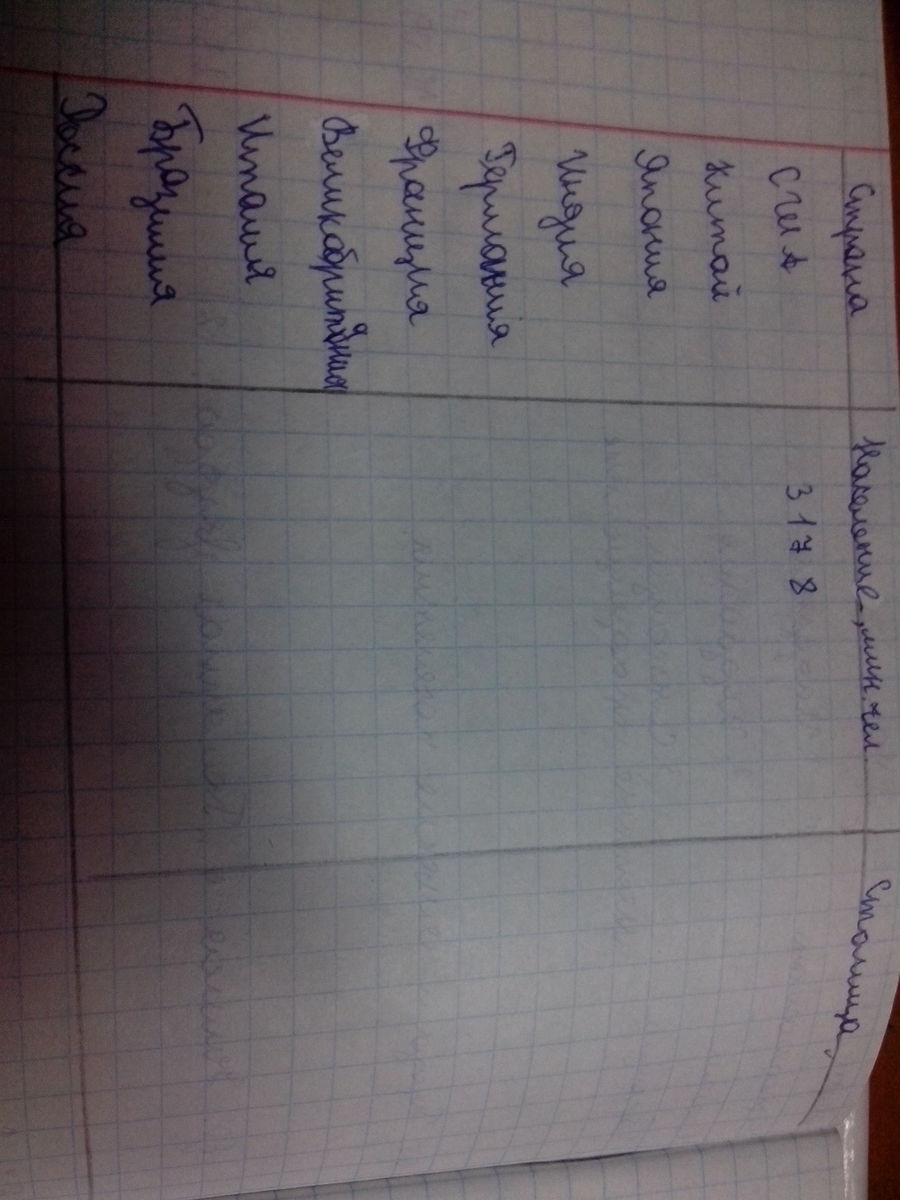 Страна Население, млн. чел. Столица
США 317 8
Китай
Япония
Индия
Германія
Франция
Великобритания
Италия
Бразилия
Россия